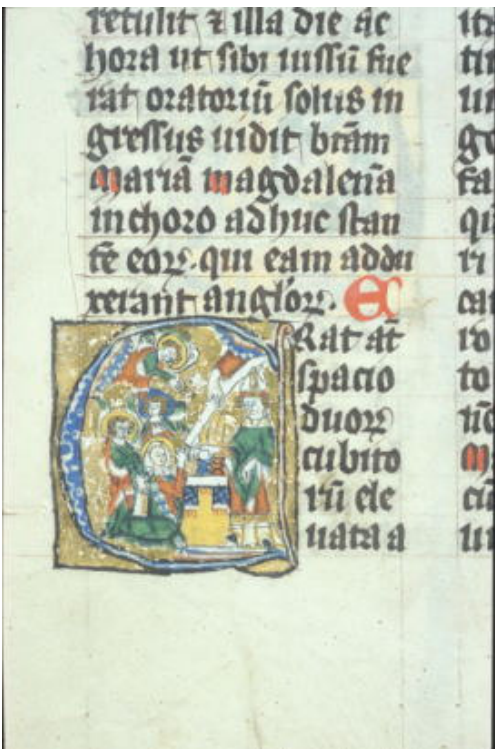 retulit ⁊ illa die ac
hora ut sibi iussū fue
rat oratoriū solus in
gressus uidit btām
Mariā magdalenā
in choro adhuc stan
tē eoꝝ. qui eam addu
xerant angl̄oꝝ. E
Rat at̄
spacio
duoꝝ
cubito
rū ele
uata a